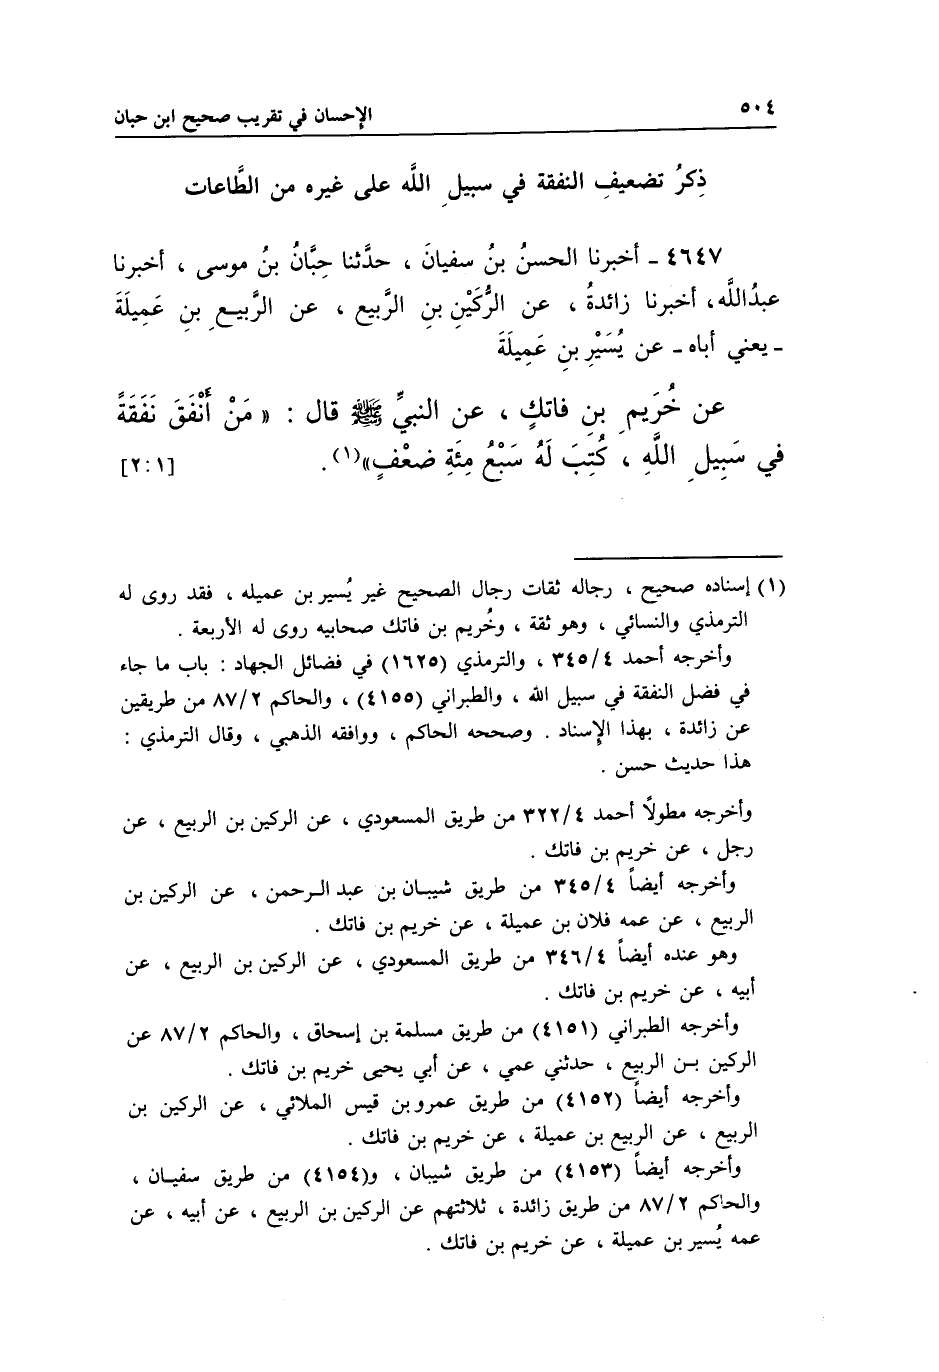 ٥٠٤ الإحسان في تقريب صحيح ابن حبان
ذِكرُ تضعيفِ النفقة في سبيلِ اللَّه على غيره من الطَّاعات
٤٦٤٧ ـ أخبرنا الحسنُ بنُ سفيانَ ، حدَّثنا حِبَّانُ بنُ موسى ، أخبرنا
عبدُاللَّه، أخبرنا زائدةُ ، عن الرُّكَيْنِ بنِ الرَّبيع ، عن الرَّبيعِ بنِ عَمِيلَةَ
ـ يعني أباه ـ عن يُسَيْرِ بنِ عَمِيلَةَ
عن خُرَيمِ بنِ فاتكٍ ، عن النبيِّ ﷺ قال : « مَنْ أَنْفَقَ نَفَقَةً
في سَبِيلِ اللَّهِ ، كُتِبَ لَهُ سَبْعُ مِئَةِ ضعْفٍ»(١). [٢:١]
(١) إسناده صحيح ، رجاله ثقات رجال الصحيح غير يُسير بن عميله ، فقد روى له
الترمذي والنسائي ، وهو ثقة ، وخُريم بن فاتك صحابيه روى له الأربعة .
وأخرجه أحمد ٣٤٥/٤ ، والترمذي (١٦٢٥) في فضائل الجهاد : باب ما جاء
في فضل النفقة في سبيل الله ، والطبراني (٤١٥٥) ، والحاكم ٨٧/٢ من طريقين
عن زائدة ، بهذا الإسناد . وصححه الحاكم ، ووافقه الذهبي ، وقال الترمذي :
هذا حديث حسن .
وأخرجه مطولاً أحمد ٣٢٢/٤ من طريق المسعودي ، عن الركين بن الربيع ، عن
رجل ، عن خريم بن فاتك .
وأخرجه أيضاً ٣٤٥/٤ من طريق شيبان بن عبد الرحمن ، عن الركين بن
الربيع ، عن عمه فلان بن عميلة ، عن خريم بن فاتك .
وهو عنده أيضاً ٣٤٦/٤ من طريق المسعودي ، عن الركين بن الربيع ، عن
أبيه ، عن خريم بن فاتك .
وأخرجه الطبراني (٤١٥١) من طريق مسلمة بن إسحاق ، والحاكم ٨٧/٢ عن
الركين بن الربيع ، حدثني عمي ، عن أبي يحيى خريم بن فاتك .
وأخرجه أيضاً (٤١٥٢) من طريق عمرو بن قيس الملائي ، عن الركين بن
الربيع ، عن الربيع بن عميلة ، عن خريم بن فاتك .
وأخرجه أيضاً (٤١٥٣) من طريق شيبان ، و(٤١٥٤) من طريق سفيان ،
والحاكم ٨٧/٢ من طريق زائدة ، ثلاثتهم عن الركين بن الربيع ، عن أبيه ، عن
عمه يُسير بن عميلة ، عن خريم بن فاتك .